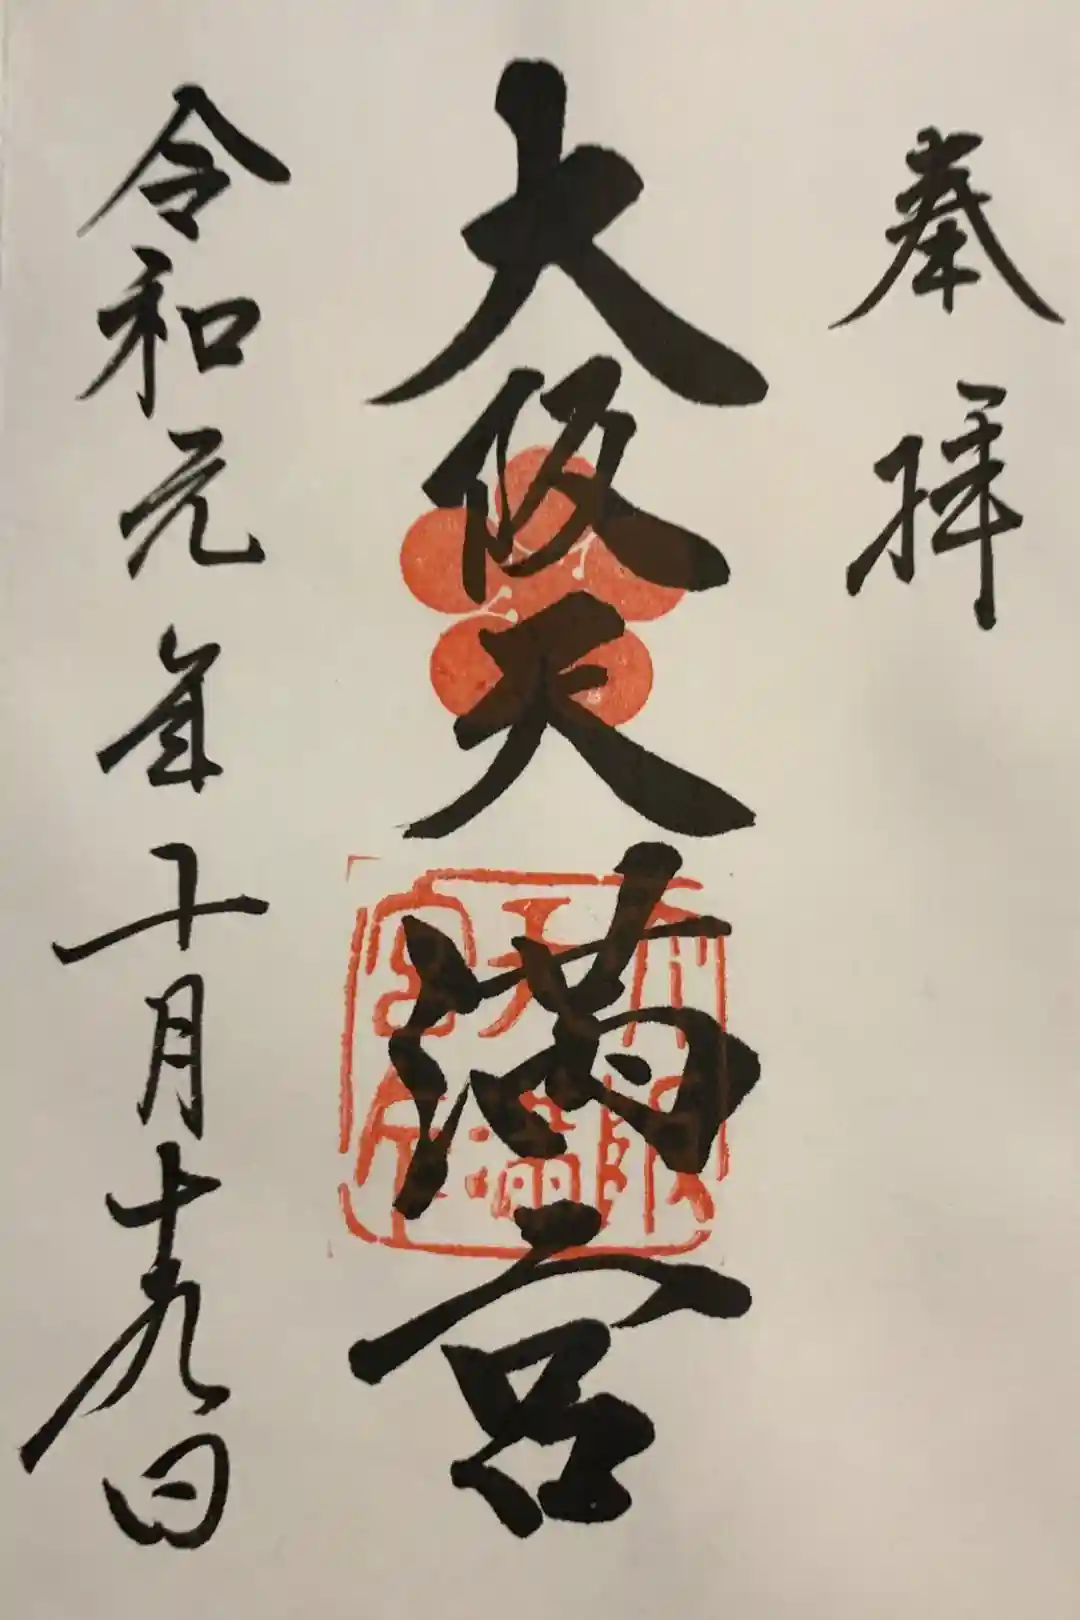 奉拝
大阪天満宮
令和元年十月十九日